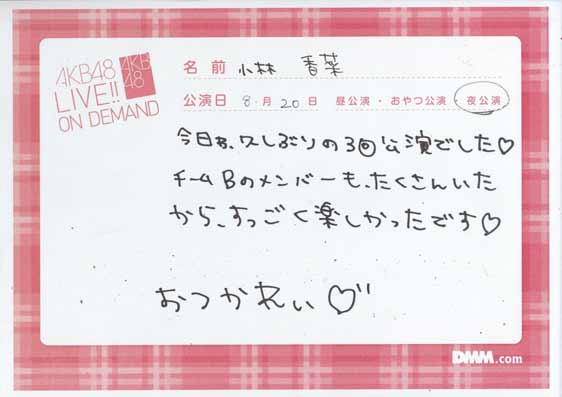 AKB48
LIVE!!
ON DEMAND
AKB
48
名前 小林 香菜
公演日 8・月20日 昼公演・おやつ公演・夜公演
今日は、久しぶりの3回公演でした♡
チームBのメンバーも、たくさんいた
から、すっごく楽しかったです♡
おつかれぃ♡
DMM.com